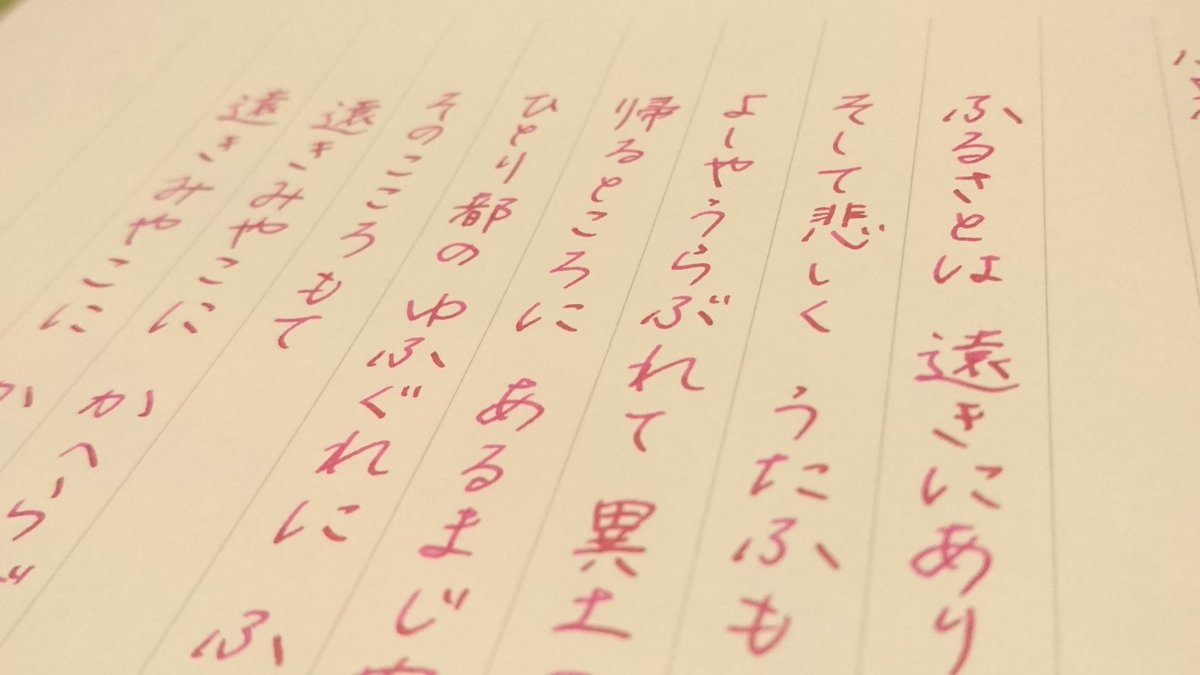 ふるさとは 遠きにあり
そして悲しく うたふも
よしやうらぶれて 異土
帰るところに あるまじ
ひとり都のゆふぐれに ふ
そのこころもて
遠きみやこに かへら
遠きみやこに か